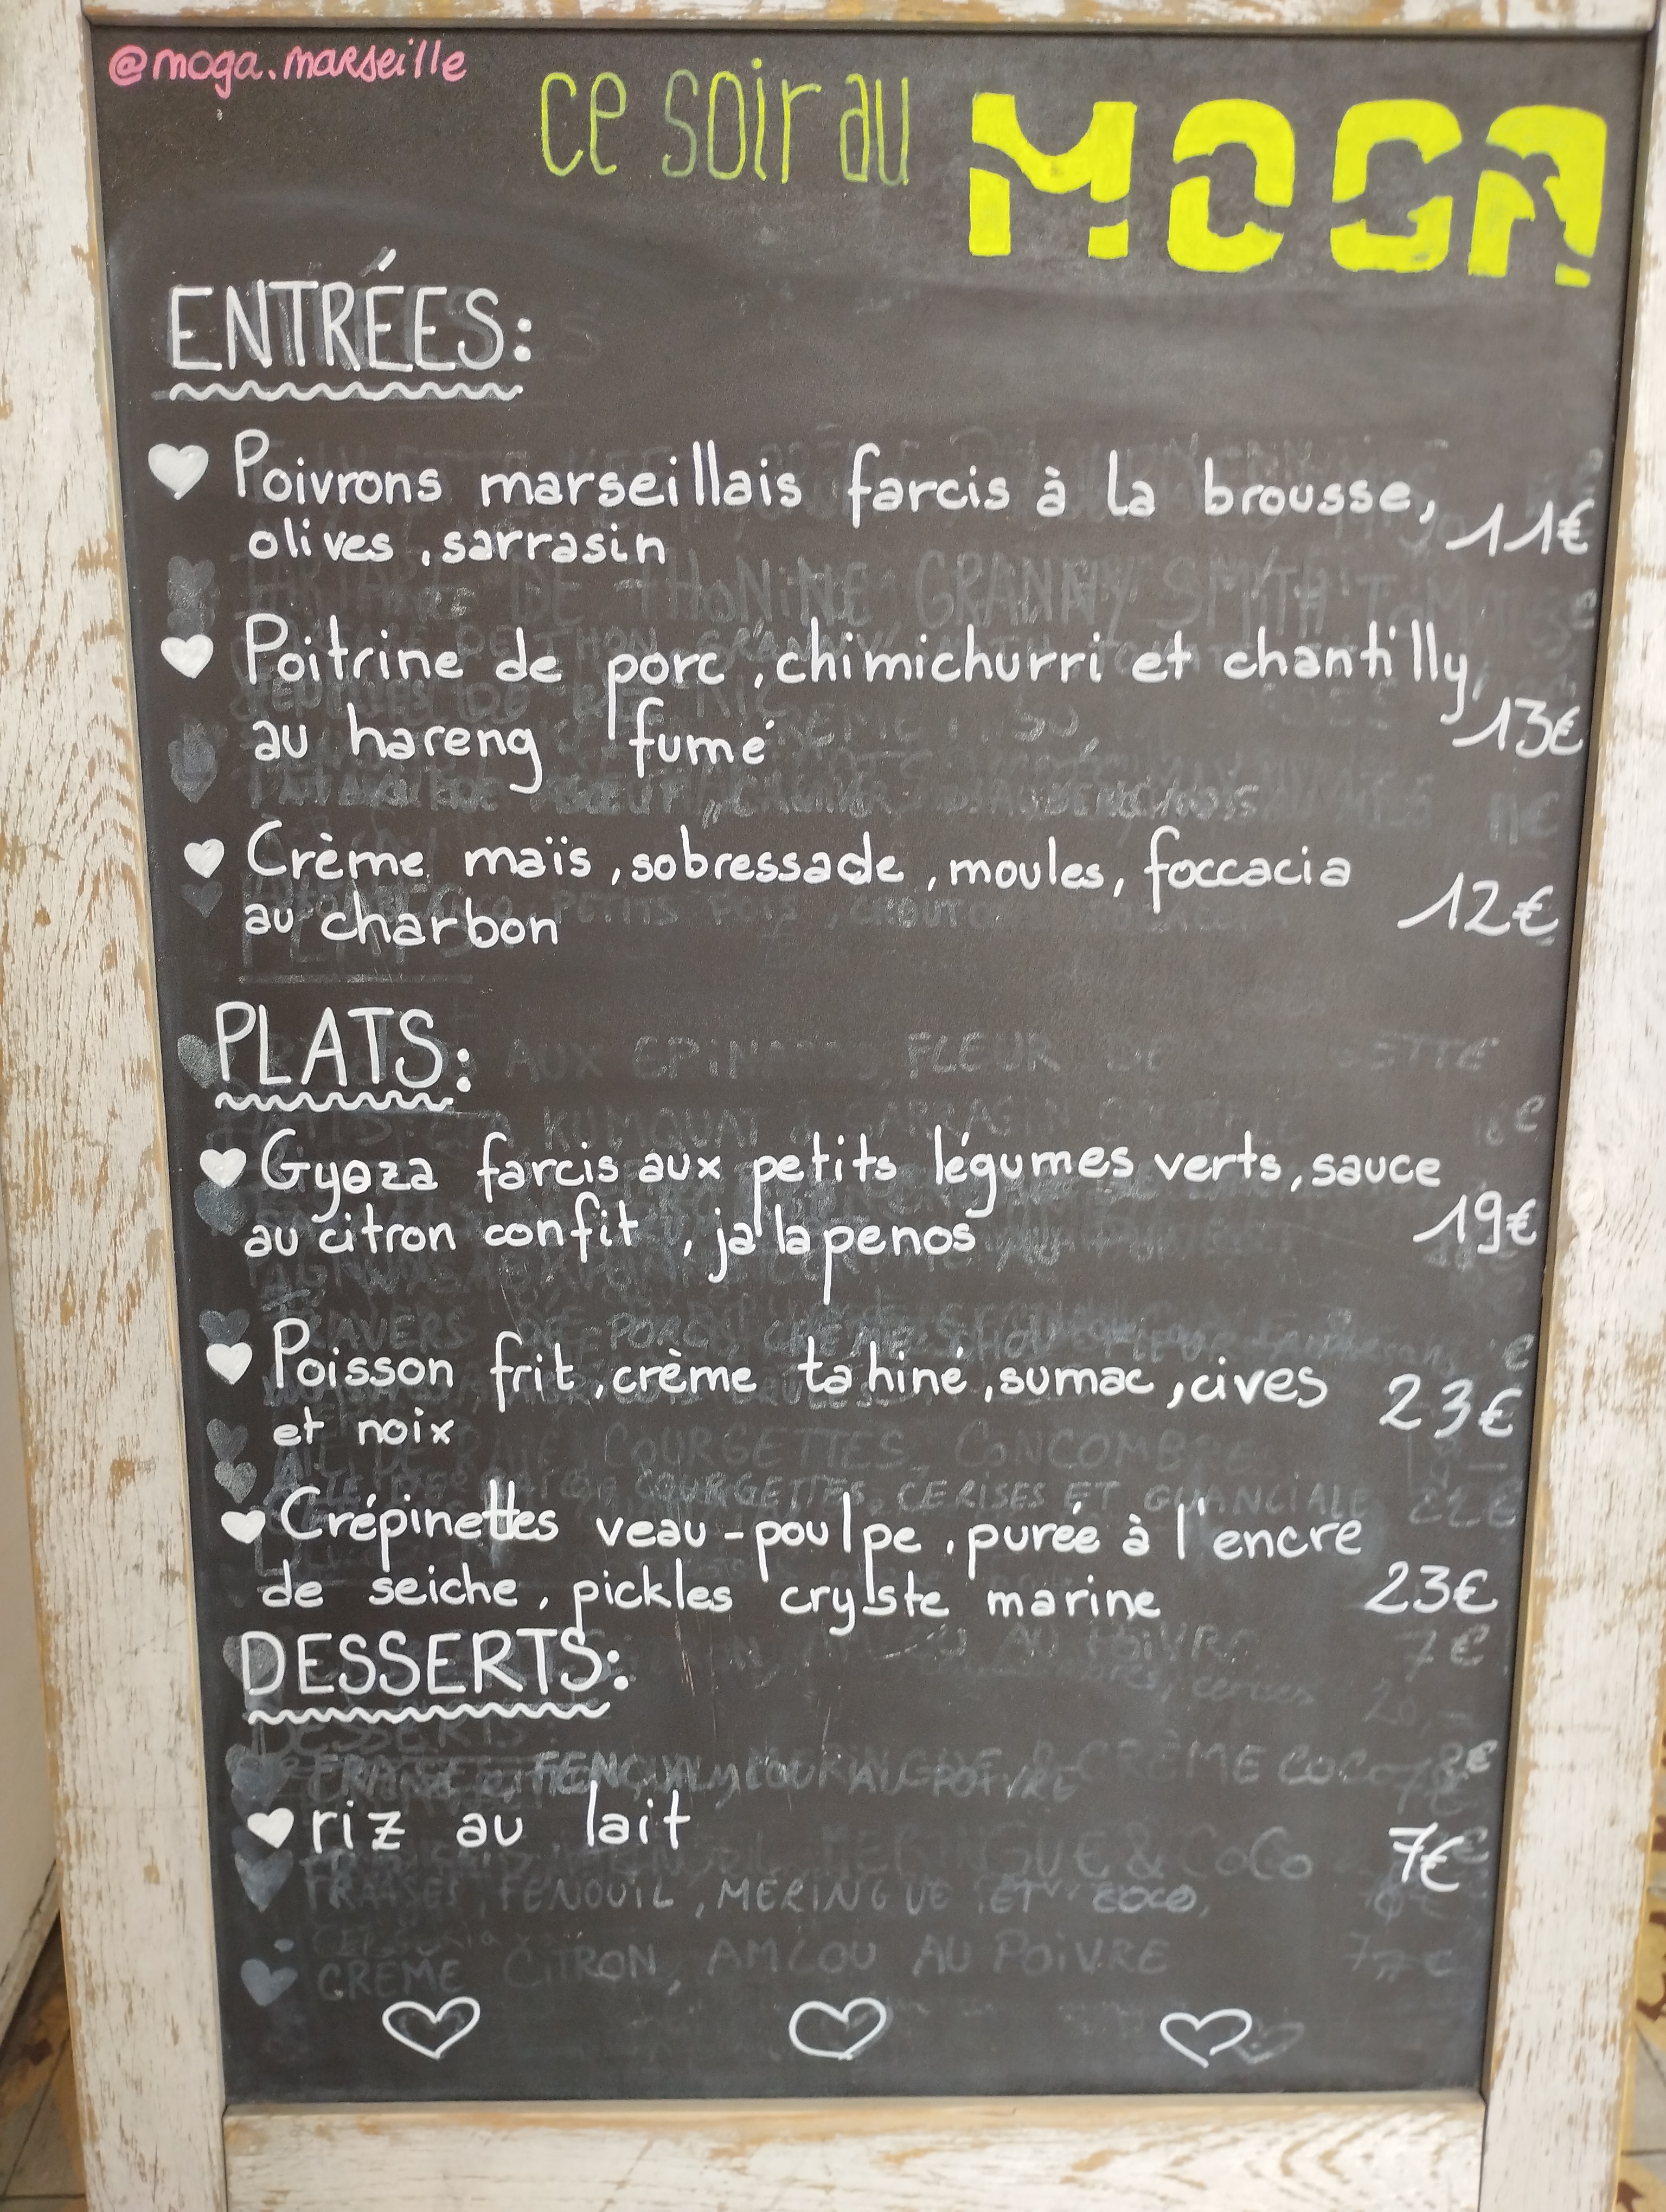 @moga.marseille
ce soir au MOGA
ENTRÉES:
Poivrons marseillais farcis à la brousse,
olives, sarrasin 11€
Poitrine de porc, chimichurri et chantilly
au hareng fumé 13€
Crème maïs, sobressade, moules, foccacia
au charbon 12€
PLATS:
Gyoza farcis aux petits légumes verts, sauce
au citron confit, jalapenos 19€
Poisson frit, crème tahiné, sumac, cives 23€
et noix
Crépinettes veau-poulpe, purée à l'encre
de seiche, pickles cryste marine 23€
DESSERTS:
riz au lait 7€
FRAISES, FENOUIL, MERINGUE ET COCO,
CREME CITRON, AMLOU AU POIVRE